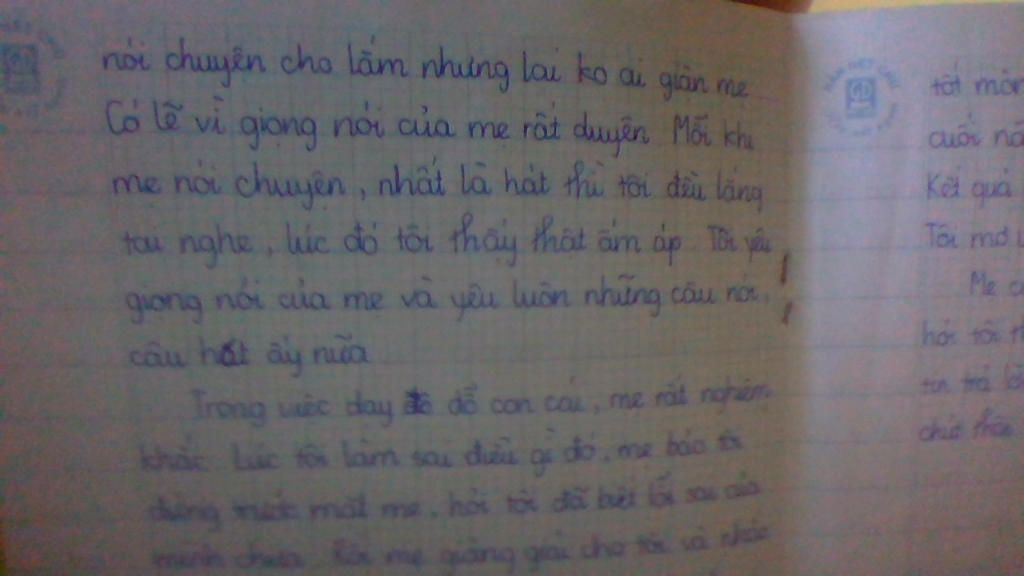 nói chuyện cho lắm nhưng lai ko ai giận mẹ
Có lẽ vì giọng nói của mẹ rất duyên. Mỗi khi
mẹ nói chuyện, nhất là hát thì tôi đều lắng
tai nghe, lúc đó tôi thấy thật ấm áp. Tôi yêu
giọng nói của mẹ và yêu luôn những câu nói,
câu hát ấy nữa
Trong việc dạy dỗ con cái, mẹ rất nghiêm
khắc. Lúc tôi làm sai điều gì đó, mẹ bảo tôi
đứng trước mặt mẹ, hỏi tôi đã biết lỗi sai của
mình chưa. Rồi mẹ giảng giải cho tôi và nhắc
tốt môn
cuối nă
Kết quả
Tôi mơ
Mẹ
hỏi tôi th
tin trả lời